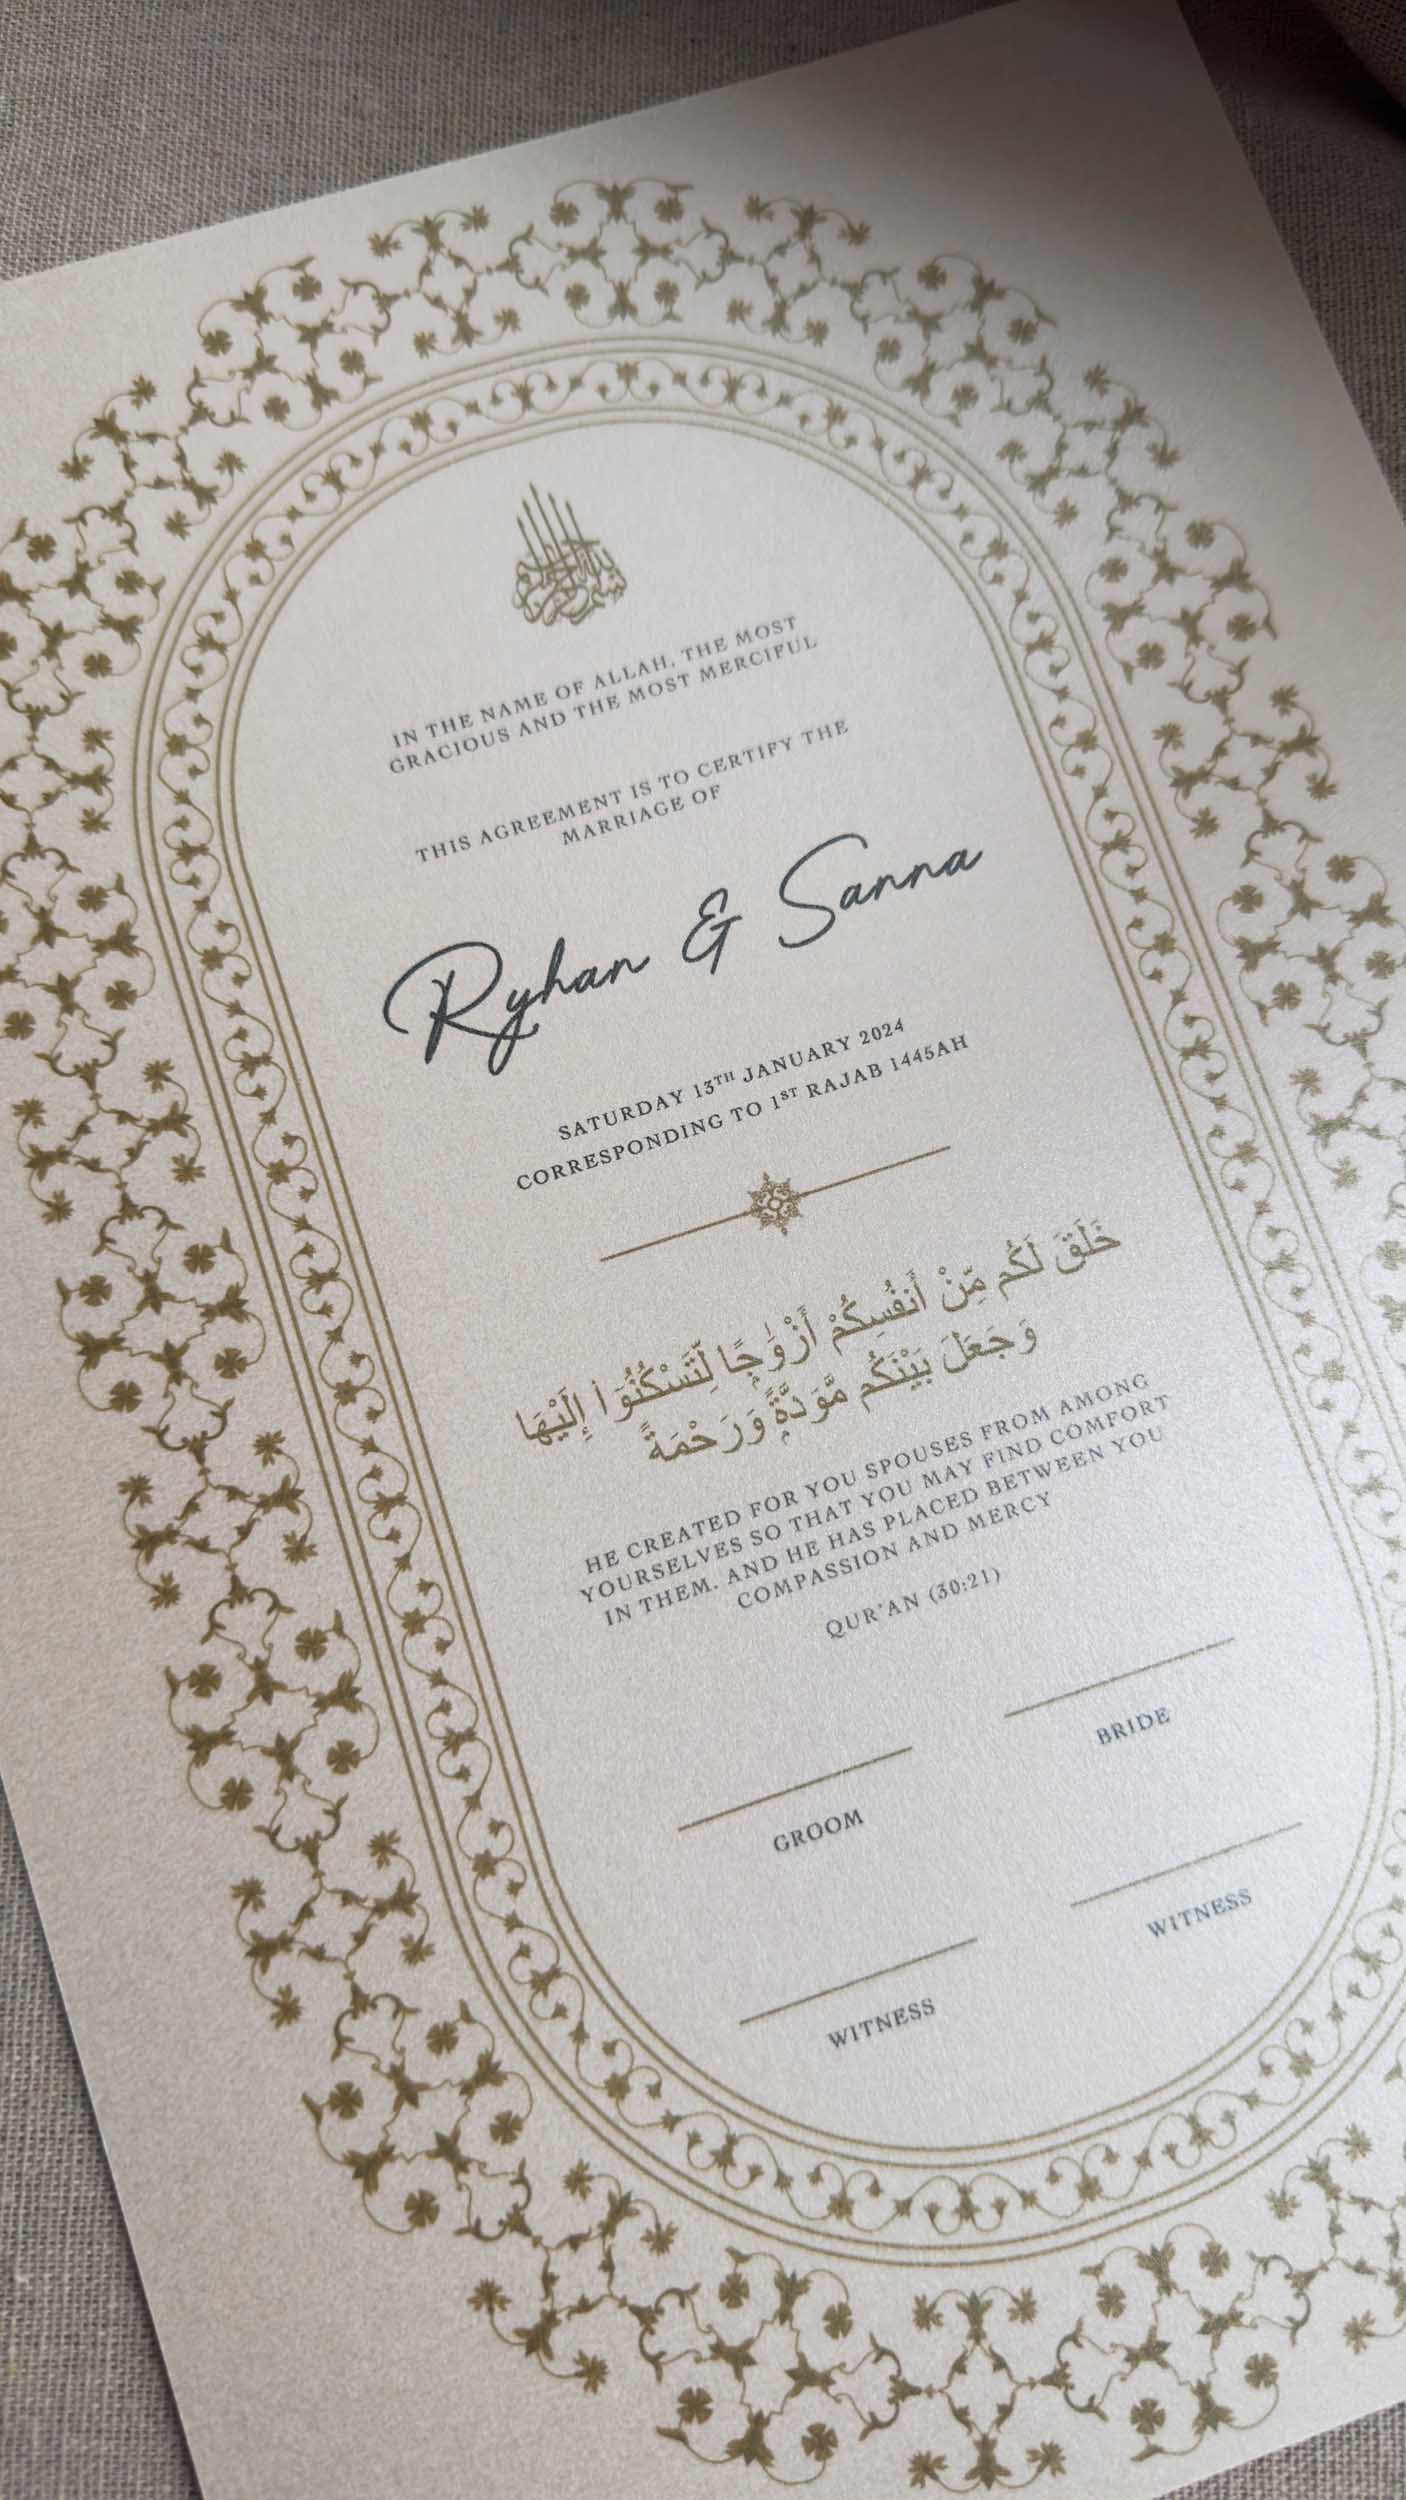 IN THE NAME OF ALLAH, THE MOST
GRACIOUS AND THE MOST MERCIFUL
THIS AGREEMENT IS TO CERTIFY THE
MARRIAGE OF
Ryhan & Sanna
SATURDAY 13TH JANUARY 2024
CORRESPONDING TO 1ST RAJAB 1445AH
خَلَقَ لَكُم مِّنْ أَنفُسِكُمْ أَزْوَٰجًا لِّتَسْكُنُوٓا۟ إِلَيْهَا
وَجَعَلَ بَيْنَكُم مَّوَدَّةً وَرَحْمَةً
HE CREATED FOR YOU SPOUSES FROM AMONG
YOURSELVES SO THAT YOU MAY FIND COMFORT
IN THEM. AND HE HAS PLACED BETWEEN YOU
COMPASSION AND MERCY
QUR'AN (30:21)
GROOM
BRIDE
WITNESS
WITNESS